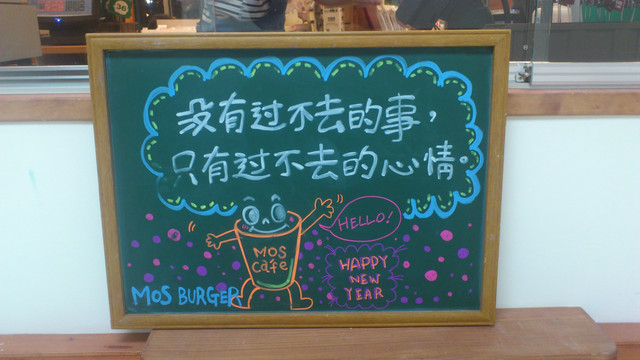 没有过不去的事，
只有过不去的心情。
HELLO!
MOS
Cafe
HAPPY
NEW
YEAR
MOS BURGER
36